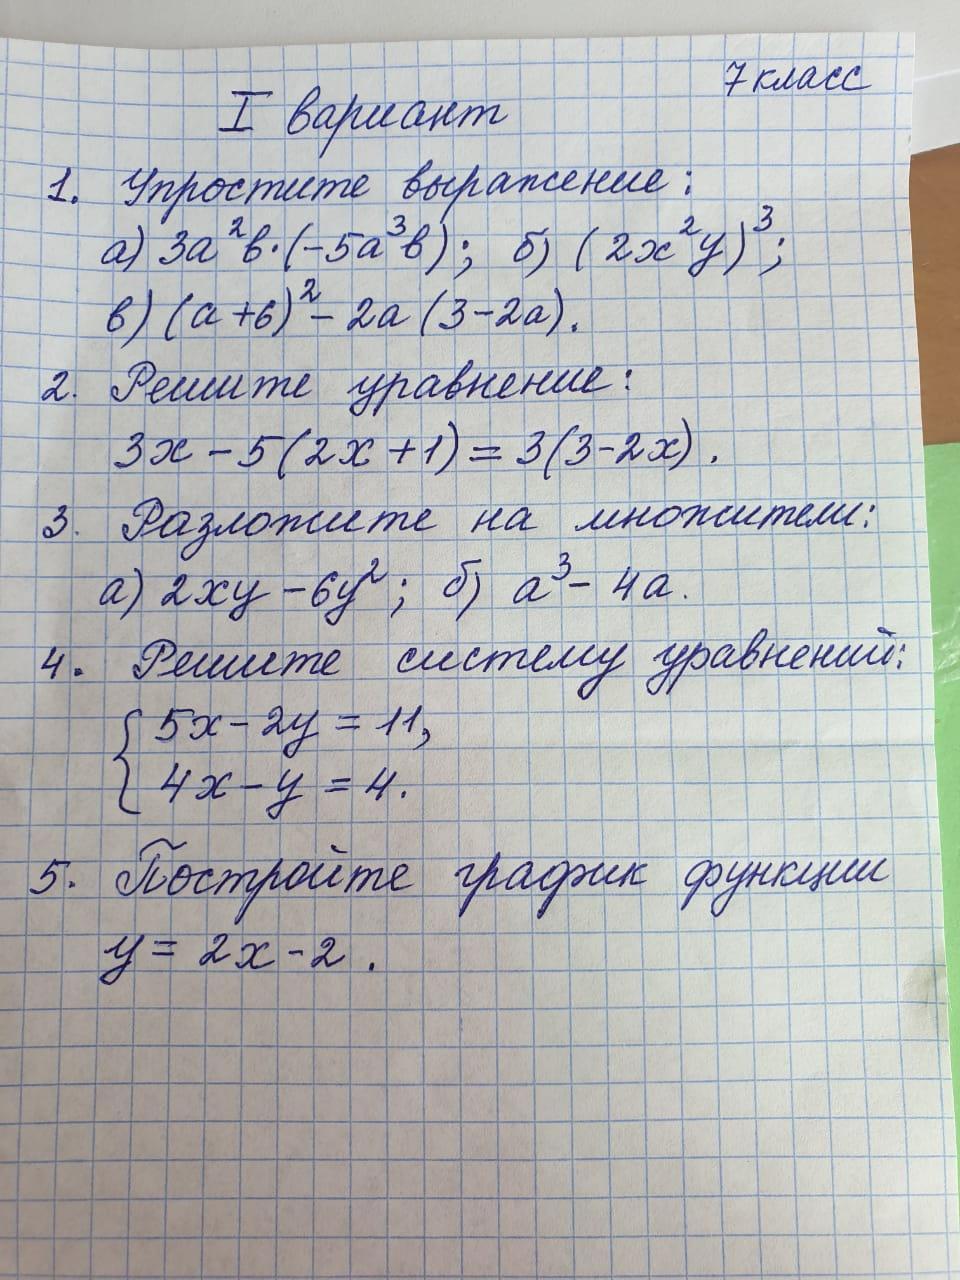 7 класс
I вариант
1. Упростите выражение:
а) 3a²b·(-5a³b); б) (2x²y)³;
в) (a+6)² - 2a (3-2a).
2. Решите уравнение:
3x - 5(2x + 1) = 3(3-2x).
3. Разложите на множители:
а) 2xy - 6y²; б) a³ - 4a.
4. Решите систему уравнений:
{ 5x - 2y = 11,
4x - y = 4.
5. Постройте график функции
y = 2x - 2.